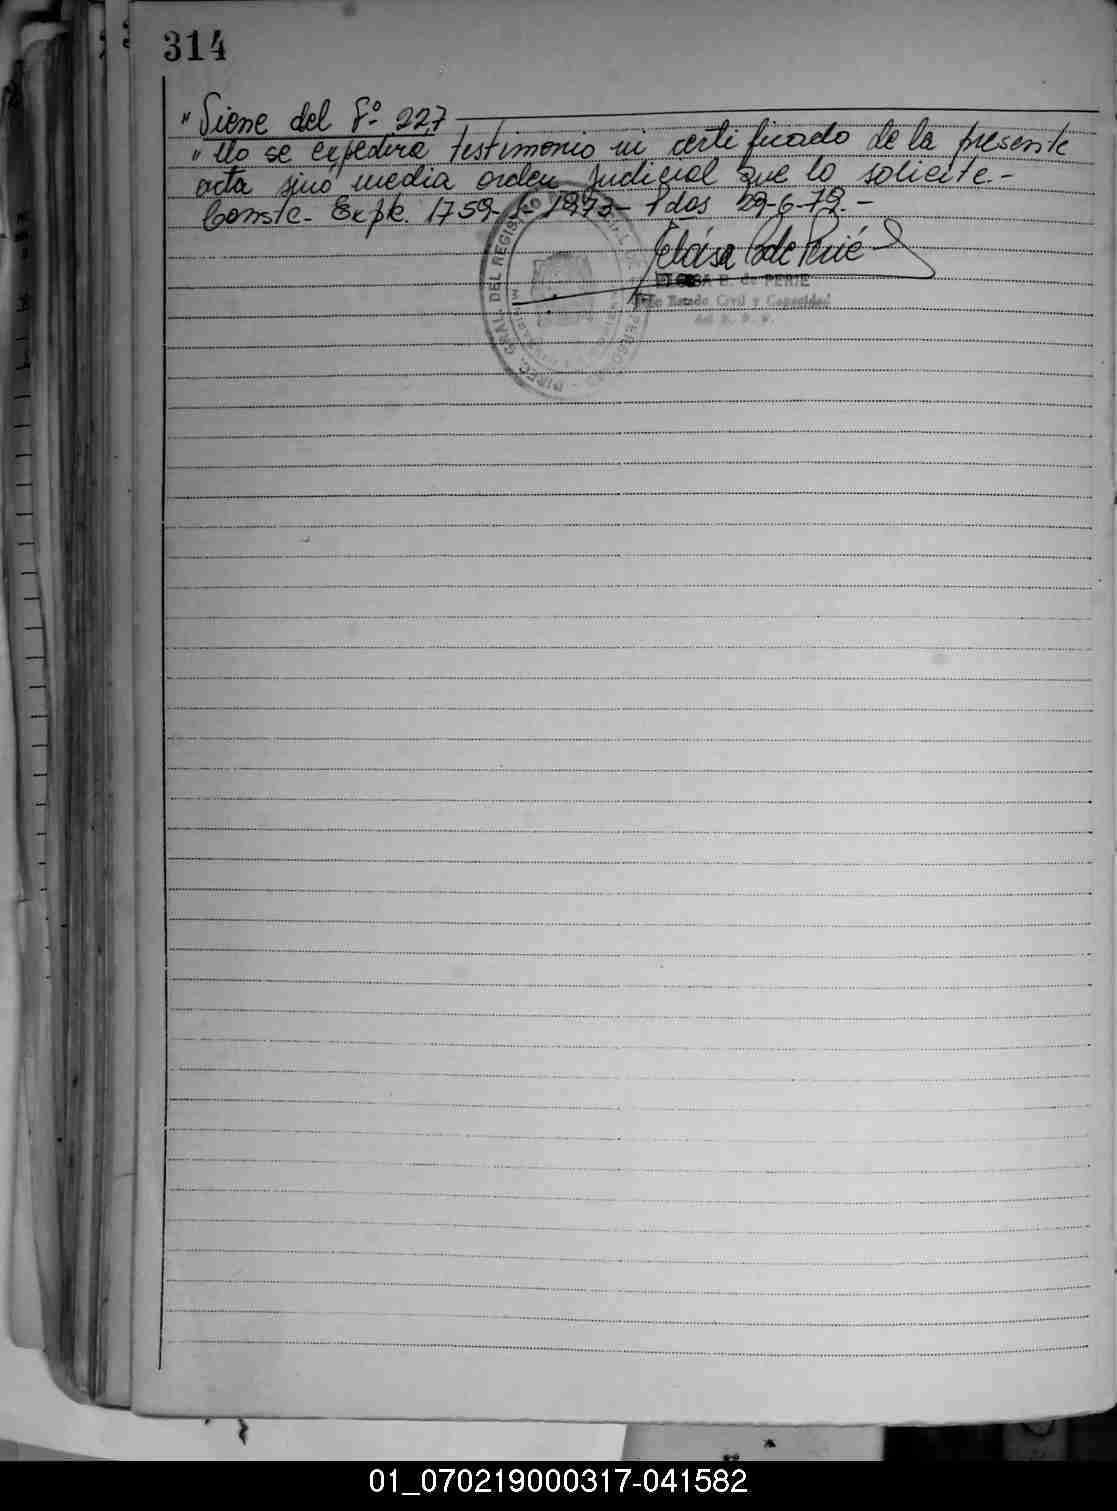 314
" Viene del Fº 227
" No se expedirá testimonio ni certificado de la presente
acta sinó media orden judicial que lo solicite.-
Conste- Expte. 1759- 1973- Pdas 29-6-79.-
DIREC. GRAL. DEL REGISTRO
ELOISA B. de PERIE
Estado Civil y Capacidad
01_070219000317-041582